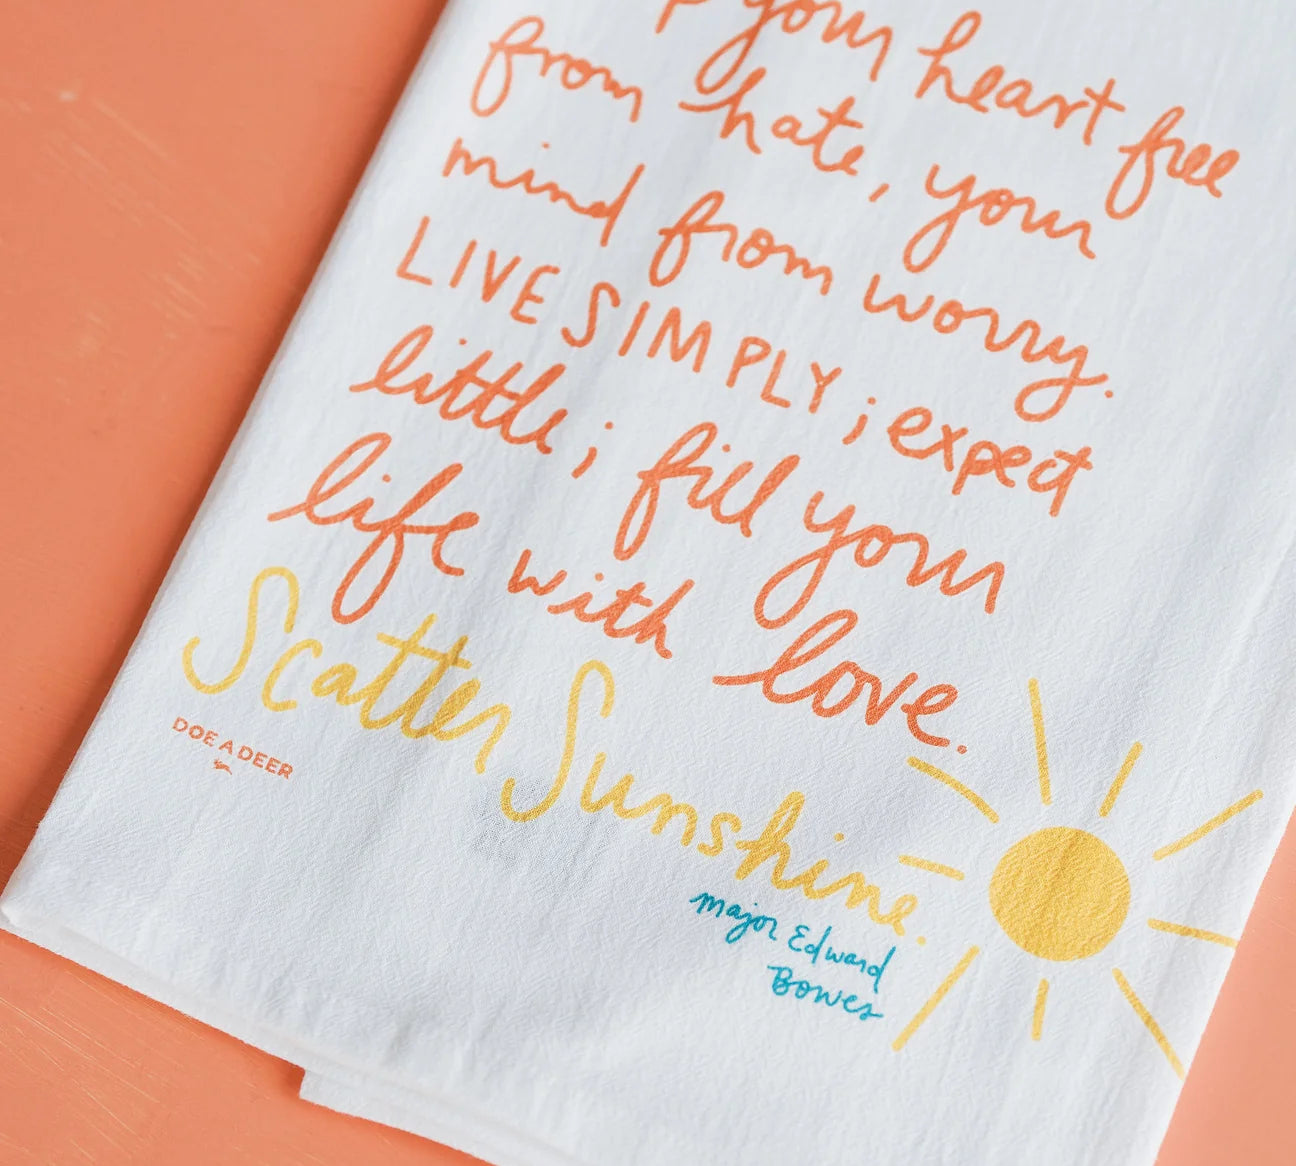 your heart free
from hate, your
mind from worry.
LIVE SIMPLY; expect
little; fill your
life with love.
Scatter Sunshine.
DOE A DEER
major Edward
Bowes